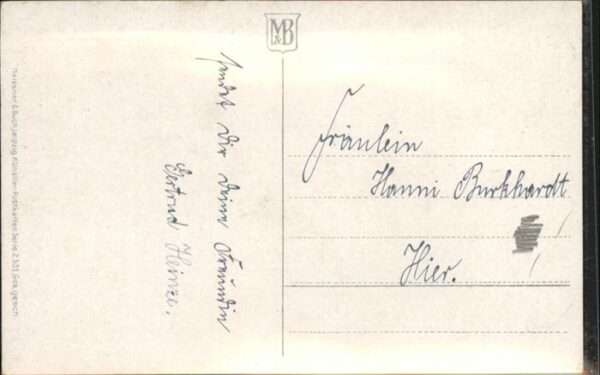 M&B
sendet Dir Deine Freundin
Gertrud Heinze.
Fräulein
Hanni Burkhardt
Hier.